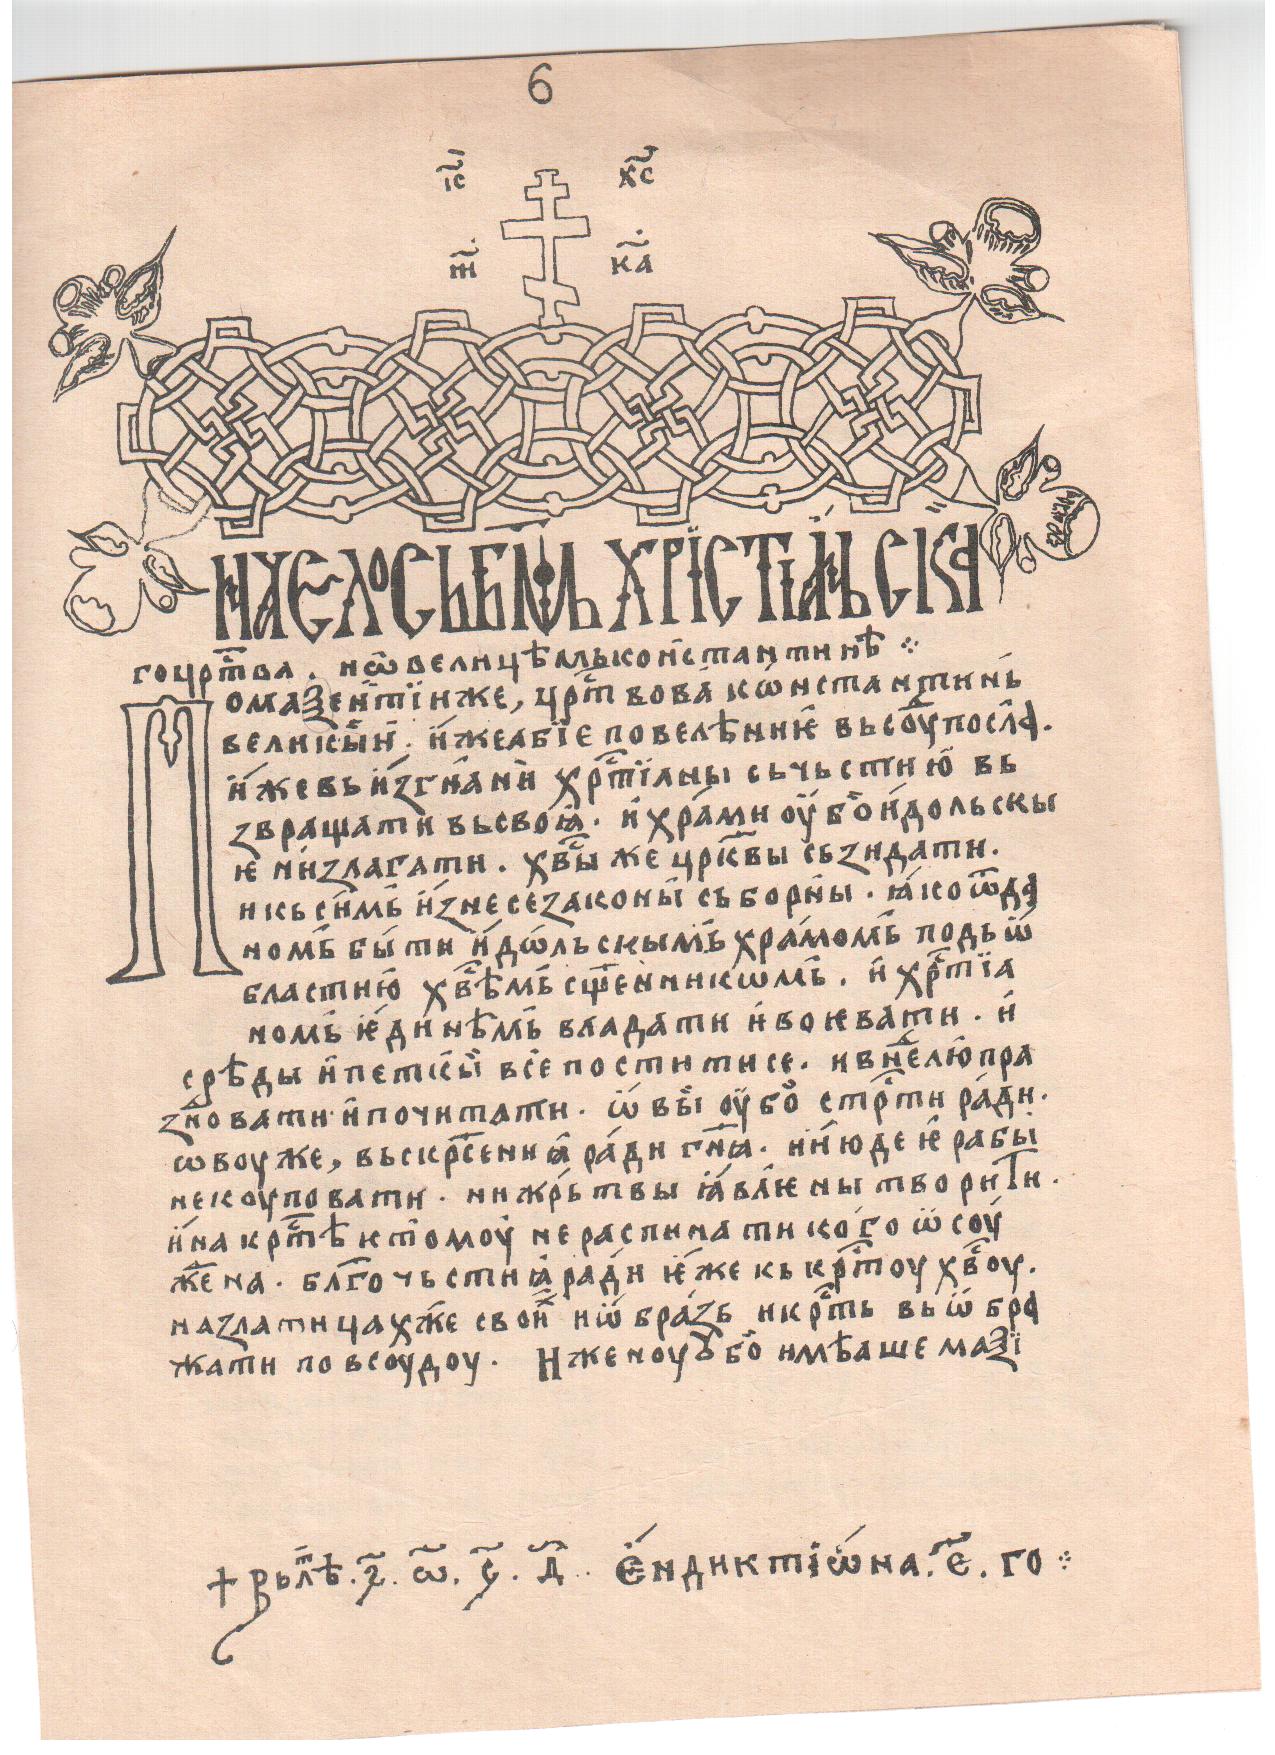 6
і҃с х҃с
н҃и ка҃
Начело съ б҃гомь хрїстїаньска
го црⷭ҇тва . и ѡ҃ велицѣмь конⷭ҇стантинѣ
Помазентїи же, црⷭ҇твова кѡнстантинь
великый . и҆же абїе повелѣнние вьсоуⷣ посла .
и҆же вь и҆згнани хрⷭ҇тїаны сь чьстию вь
звращати вь своꙗ . и҆ храми оу҆бо и҆дольскы
ѥ низлагати . хв҃ы же црк҃вы сьзидати .
и кь симь и҆знесе законы сьборны . ꙗко ѿда
номь быти и҆дѡльскымь храмомь подь ѡ҆
бластию хв҃ѣмь сщ҃енникѡмь . и҆ хрⷭ҇тїа
номь ѥдинѣмь владати и воѥвати . и҆
срѣды и҆ петкы все поститисе . и вь нⷣелю пра
зновати и҆ почитати . ѡ҆вы оу҆бо стрⷭ҇ти ради .
ѡвоу же, вьскрⷭ҇сенниꙗ ради гн҃ꙗ . и и҆юдеѥ рабы
не коуповати . ни жрьтвы ꙗвлѥны творити .
и҆ на крⷭ҇тѣ к томоу не распинати кого ѡ҆соу
жⷣена . блг҃очьстиꙗ ради ѥже кь крⷭ҇тоу хв҃оу .
на златицахже свои и҆ ѡ҆бразь и крⷭ҇ть вьѡ҆бра
жати по всоудоу . Иже ноу оубо имѣаше мазї
+ вь лѣⷮ . з҃ . ѡ҃ . ч҃ . д҃ . е҆ндиктїѡ҆на . е҃ . го